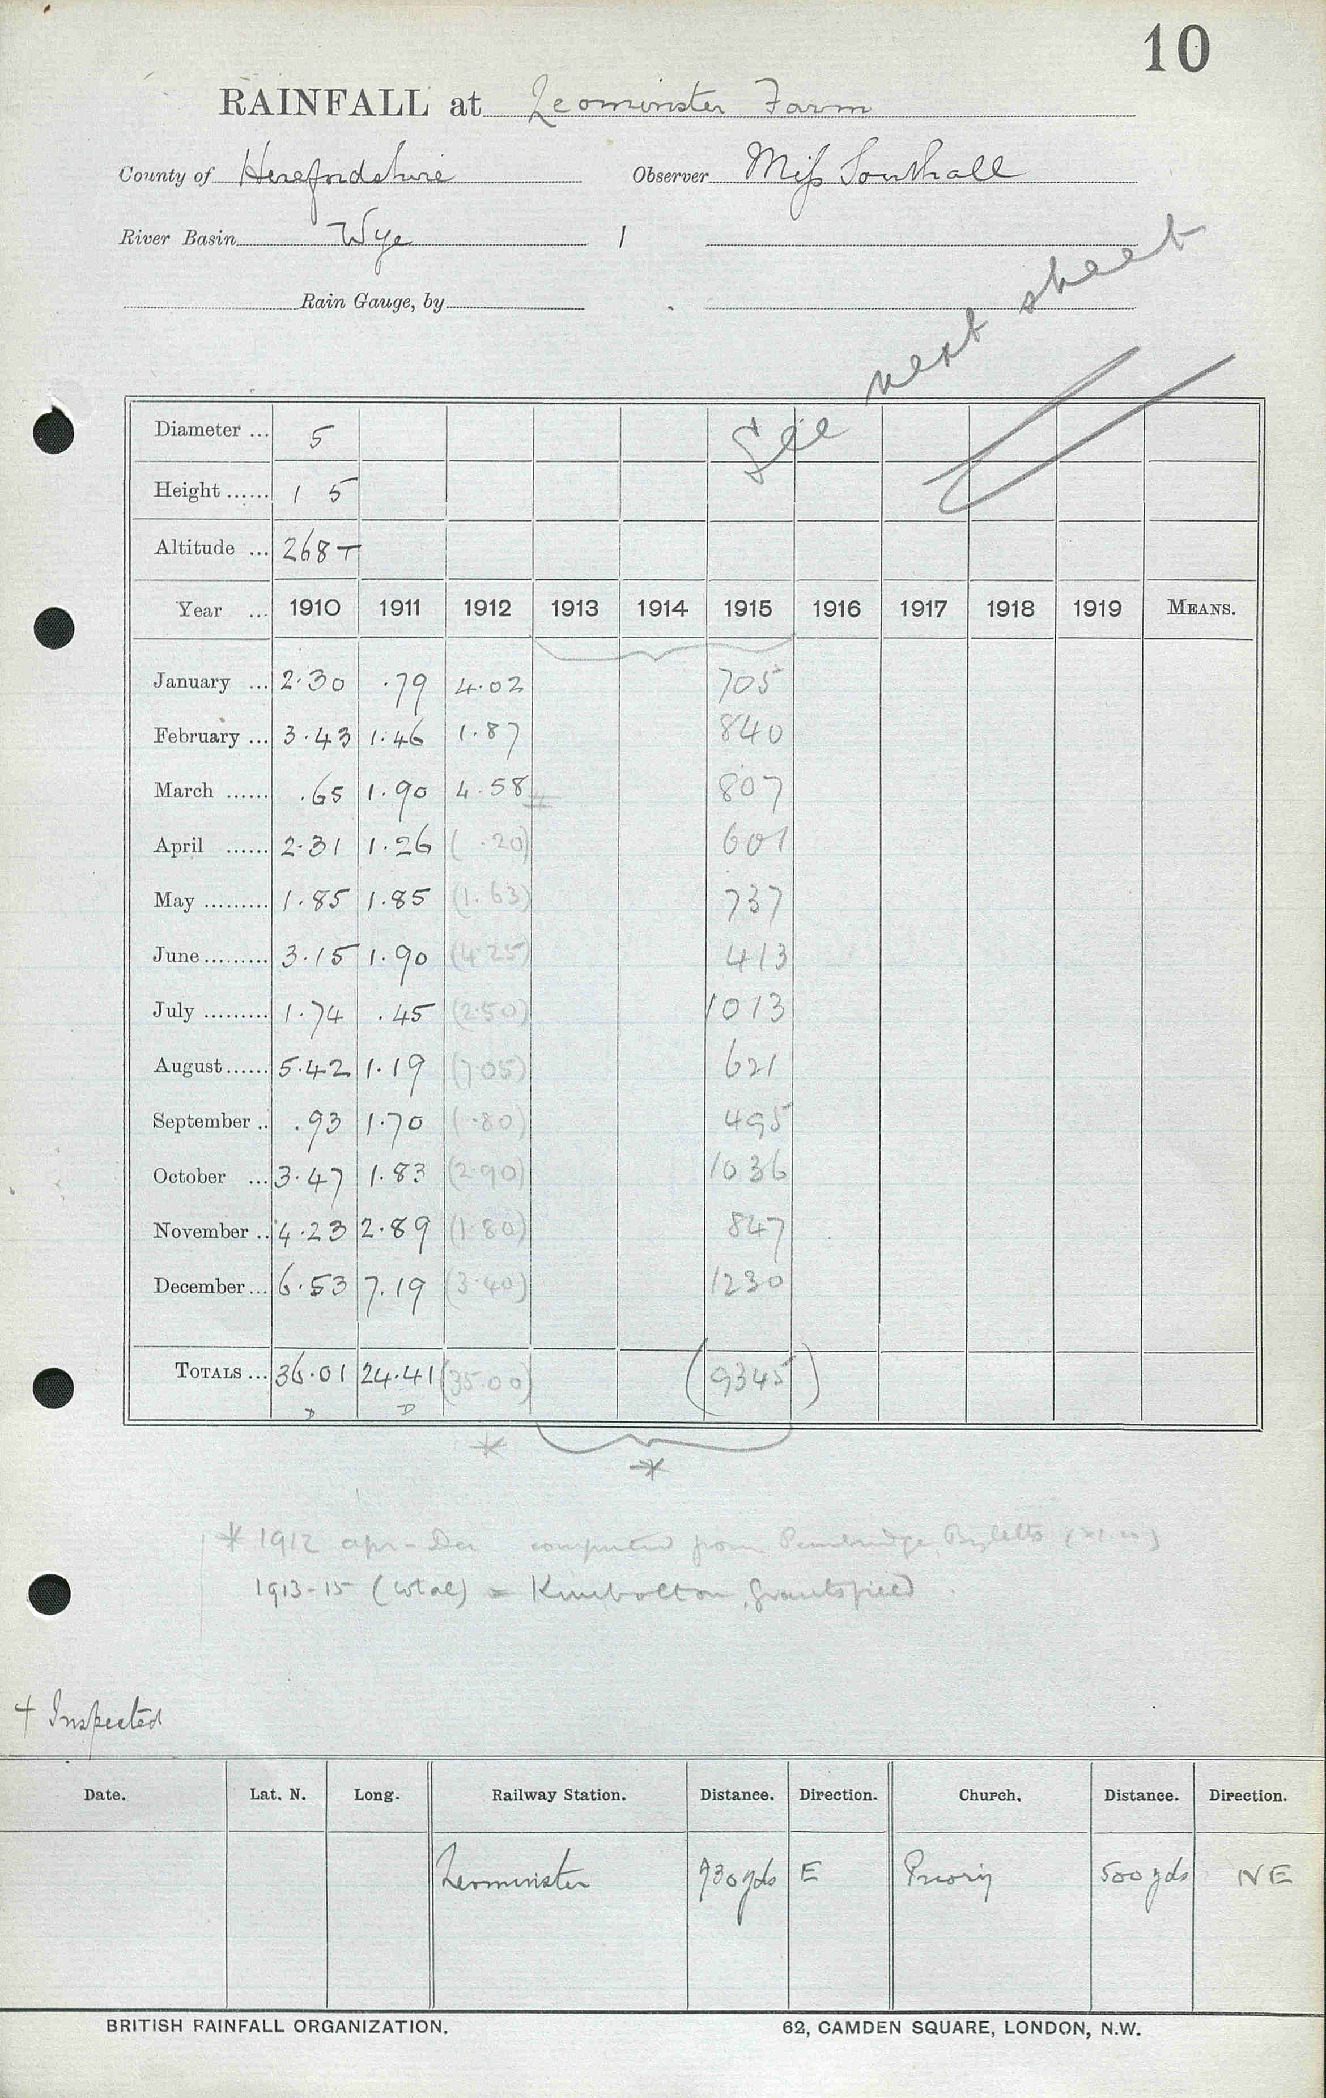 10
RAINFALL at Leominster Farm
County of Herefordshire Observer Miss Southall
River Basin Wye 1
Rain Gauge, by
See next sheet
Diameter ... 5
Height ...... 1 5
Altitude ... 268 T
Year ... 1910 1911 1912 1913 1914 1915 1916 1917 1918 1919 MEANS.
January ... 2.30 .79 4.02 705
February ... 3.43 1.46 1.87 840
March ...... .65 1.90 4.58 807
April ...... 2.31 1.26 ( .20) 601
May ......... 1.85 1.85 (1.63) 737
June ......... 3.15 1.90 (4.25) 413
July ......... 1.74 .45 (2.50) 1013
August ...... 5.42 1.19 (7.05) 621
September .. .93 1.70 ( .80) 495
October ... 3.47 1.83 (2.90) 1036
November .. 4.23 2.89 (1.80) 847
December ... 6.53 7.19 (3.40) 1230
TOTALS ... 36.01 24.41 (35.00) (9345)
D D
* *
* 1912 apr - Dec computed from Pembridge, Byletts
1913-15 (total) = Kimbolton, Grantsfield
+ Inspected
Date. Lat. N. Long. Railway Station. Distance. Direction. Church. Distance. Direction.
Leominster 730 yds E Priory 500 yds NE
BRITISH RAINFALL ORGANIZATION. 62, CAMDEN SQUARE, LONDON, N.W.